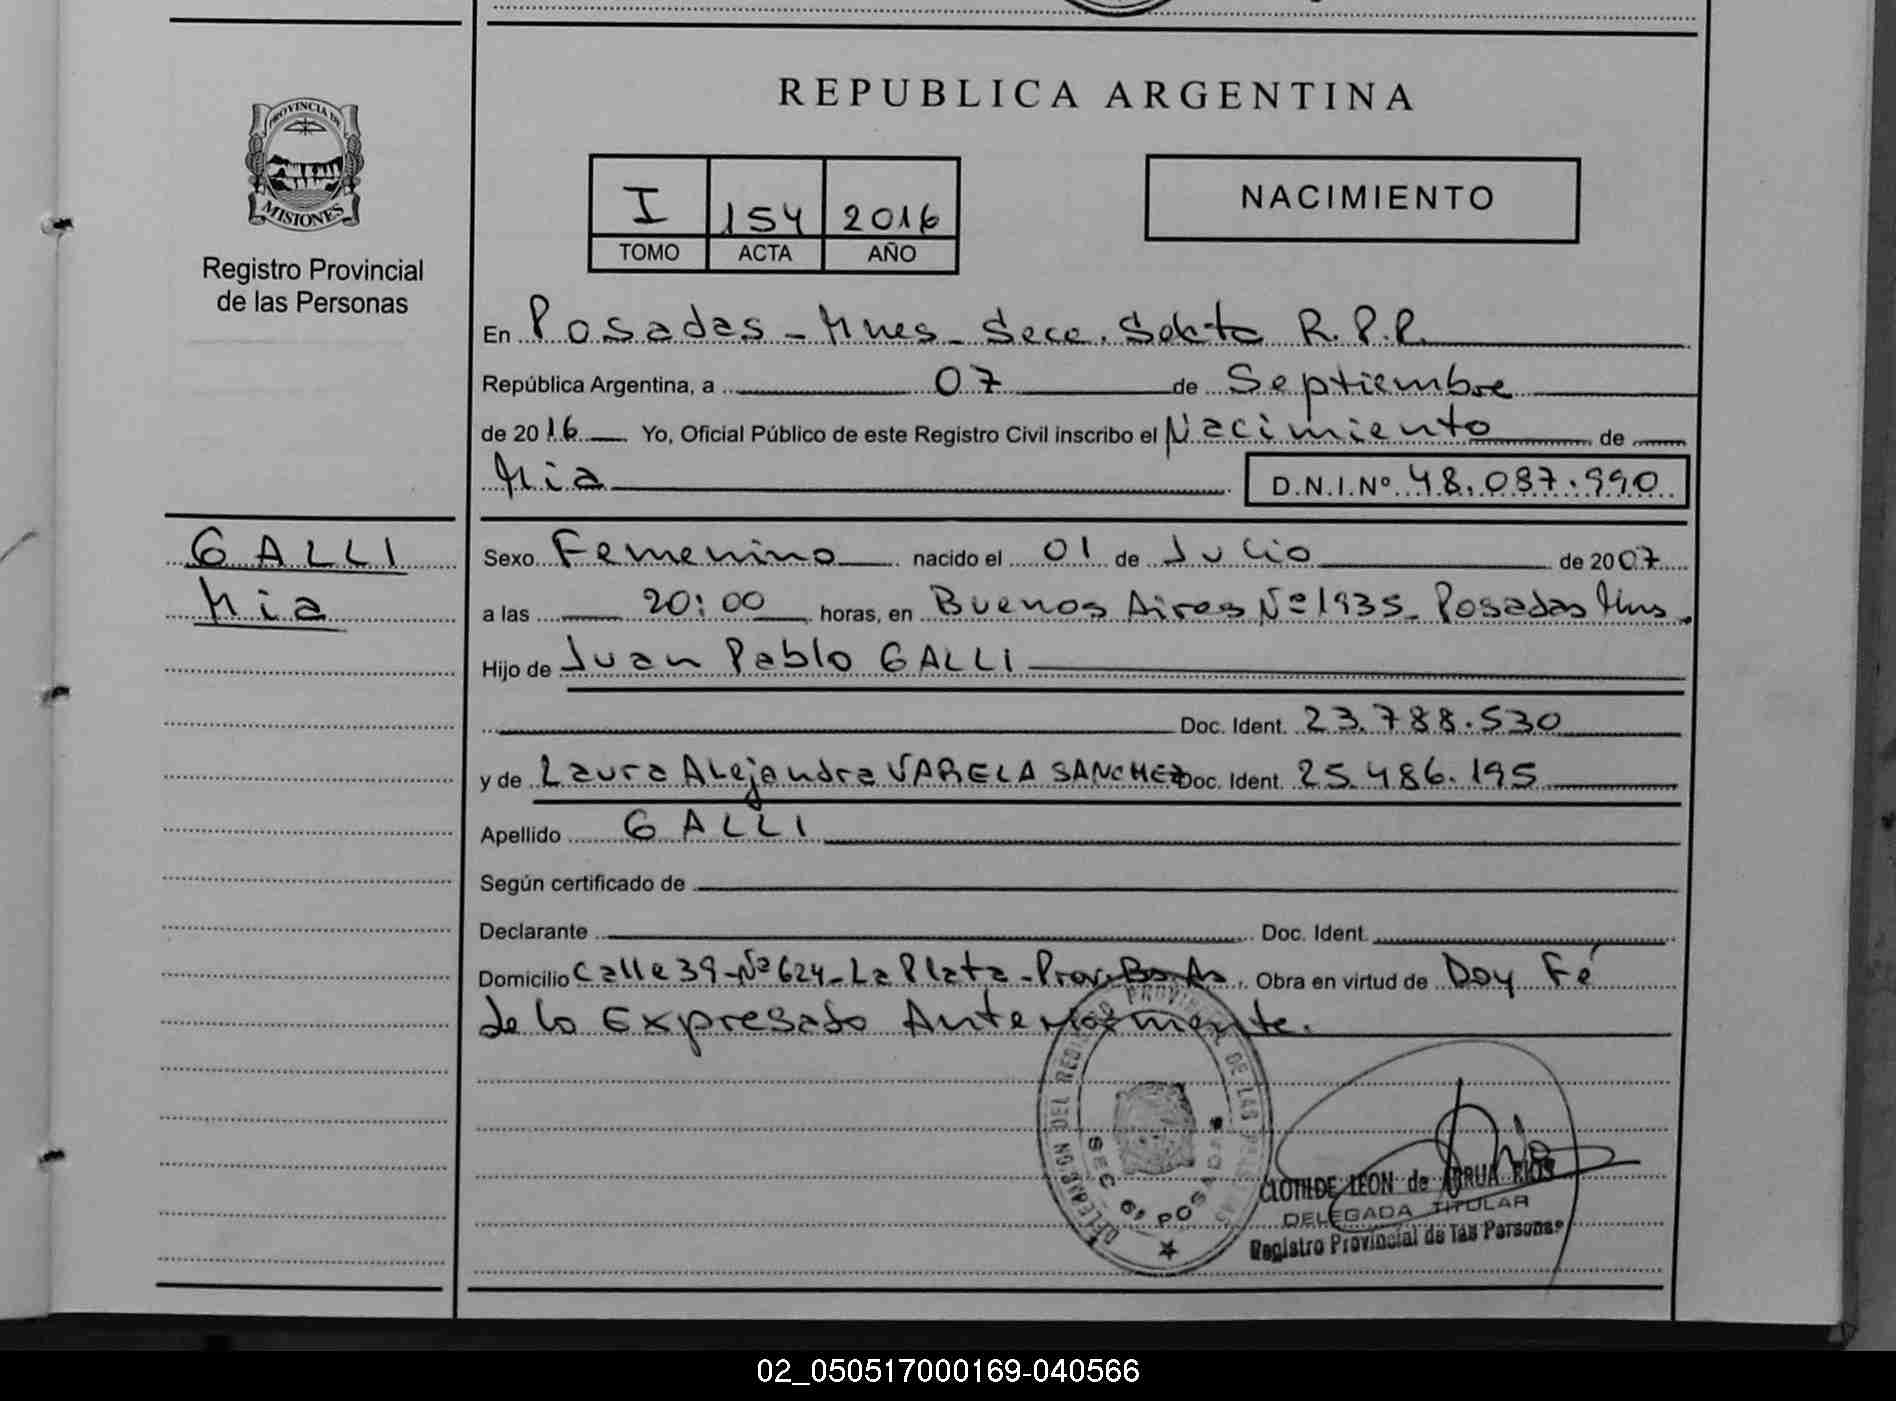 REPUBLICA ARGENTINA
PROVINCIA DE
MISIONES
Registro Provincial
de las Personas
I 154 2016
TOMO ACTA AÑO
NACIMIENTO
En Posadas - Mnes - Secc. Sexta R.P.P.
República Argentina, a 07 de Septiembre
de 2016 Yo, Oficial Público de este Registro Civil inscribo el Nacimiento de
Mia D.N.I.Nº 48.087.990
GALLI
Mia
Sexo Femenino nacido el 01 de Julio de 2007
a las 20:00 horas, en Buenos Aires Nº 1935 - Posadas Mns.
Hijo de Juan Pablo GALLI
Doc. Ident. 23.788.530
y de Laura Alejandra VARELA SANCHEZ Doc. Ident. 25.486.195
Apellido GALLI
Según certificado de
Declarante Doc. Ident.
Domicilio Calle 39 - Nº 624 - La Plata - Prov. Bs. As. Obra en virtud de Doy Fé
de lo Expresado Anteriormente.
DELEGACION DEL REGISTRO PROVINCIAL DE LAS PERSONAS
SEC 6ª POSADAS
CLOTILDE LEON de ARRUA RIOS
DELEGADA TITULAR
Registro Provincial de las Personas
02_050517000169-040566